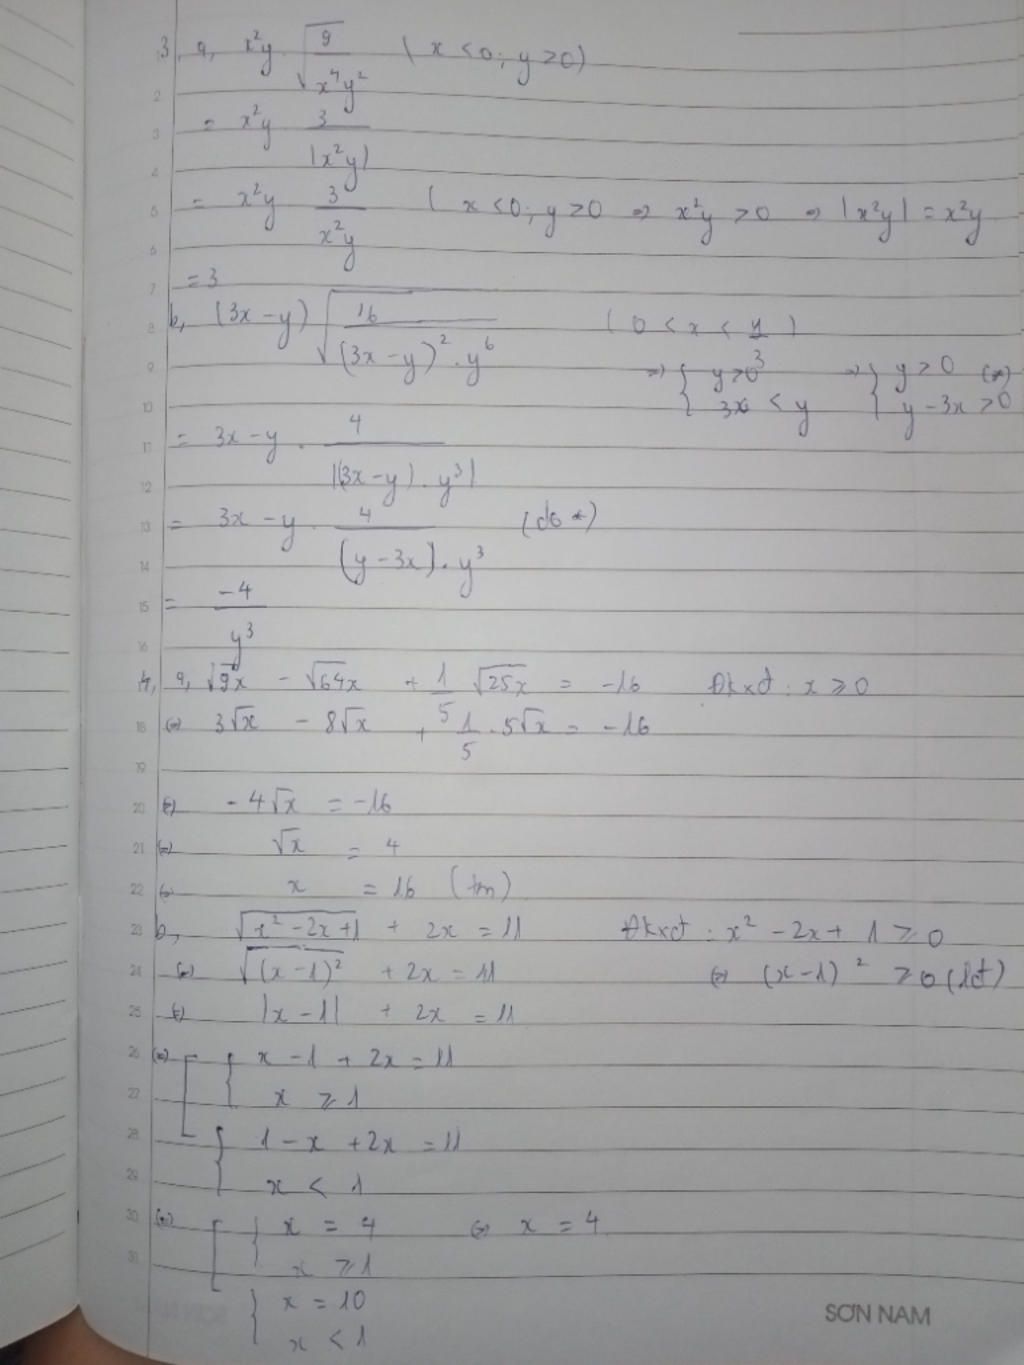 3, a, x²y . √(9/(x⁴y²)) ( x <0; y >0)
= x²y 3/|x²y|
= x²y 3/(x²y) ( x <0; y >0 => x²y >0 => |x²y| = x²y
= 3
b, (3x-y) √(16/((3x-y)² . y⁶)) ( 0 < x < y/3 )
=> { y>0 ; 3x < y => { y >0 (*) ; y - 3x >0
= 3x - y . 4/|(3x-y) . y³|
= 3x - y . 4/((y-3x) . y³) (do *)
= -4/y³
4, a, √9x - √64x + 1/5 √25x = -16 Đkxđ : x ≥ 0
(=) 3√x - 8√x + 1/5 . 5√x = -16
(=) - 4√x = -16
(=) √x = 4
(=) x = 16 (tm)
b, √(x² - 2x + 1) + 2x = 11 Đkxđ : x² - 2x + 1 ≥ 0
(=) √((x-1)²) + 2x = 11 (=) (x-1)² ≥ 0 (lđ)
(=) |x-1| + 2x = 11
(=) [ { x - 1 + 2x = 11
x ≥ 1
{ 1 - x + 2x = 11
x < 1
(=) [ { x = 4 (=) x = 4
x ≥ 1
{ x = 10
x < 1
SƠN NAM